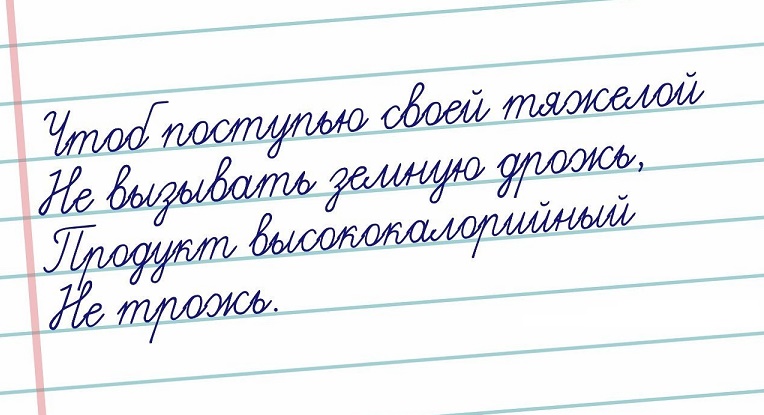 Чтоб поступью своей тяжелой
Не вызывать земную дрожь,
Продукт высококалорийный
Не трожь.